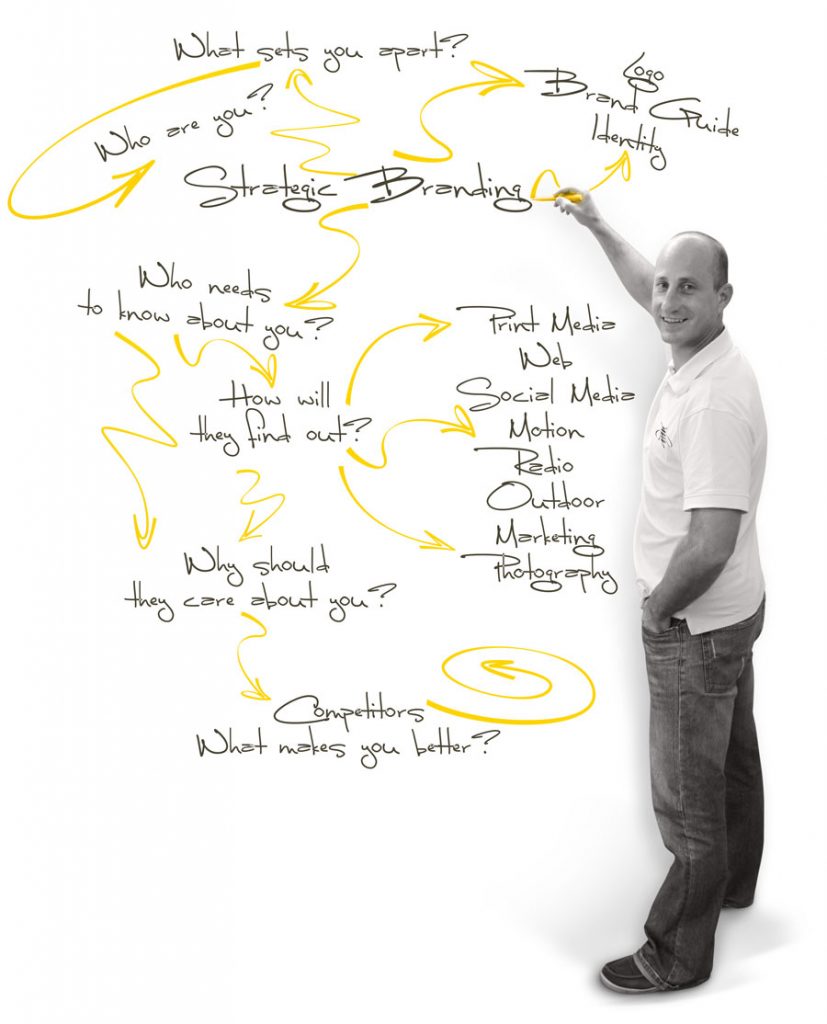 What sets you apart?
Who are you?
Logo
Brand Guide
Identity
Strategic Branding
Who needs
to know about you?
How will
they find out?
Print Media
Web
Social Media
Motion
Radio
Outdoor
Marketing
Photography
Why should
they care about you?
Competitors
What makes you better?